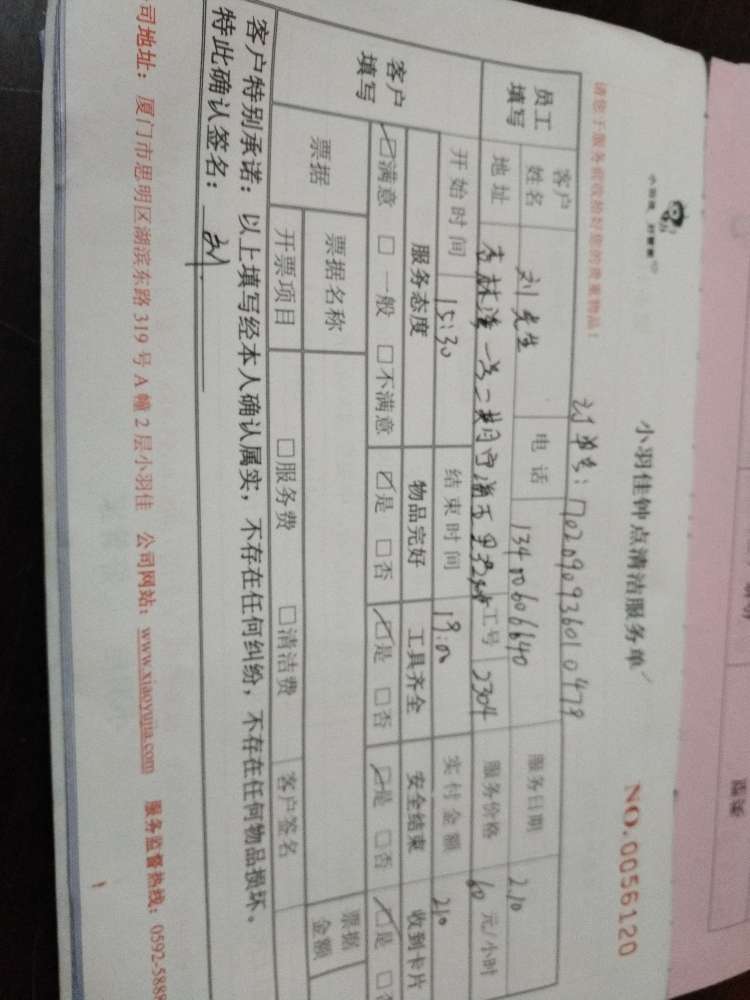 小羽佳 好管家
小羽佳钟点清洁服务单
NO.0056120
请您于服务前收拾好您的贵重物品!
订单号: 702090936010478
员工填写
客户姓名 刘先生 电话 13400606640 服务日期 2.10
地址 杏林湾一号二期 工号 2304 服务价格 60 元/小时
客户填写
开始时间 15:30 结束时间 19:00 实付金额 210
服务态度 物品完好 工具齐全 安全结束 收到卡片
☑满意 □一般 □不满意 ☑是 □否 ☑是 □否 ☑是 □否 ☑是 □否
票据 票据名称 票据金额
开票项目 □服务费 □清洁费 客户签名
客户特别承诺:以上填写经本人确认属实,不存在任何纠纷,不存在任何物品损坏。
特此确认签名: 刘
司地址: 厦门市思明区湖滨东路 319 号 A 幢 2 层小羽佳 公司网站: www.xiaoyujia.com 服务监督热线: 0592-5888